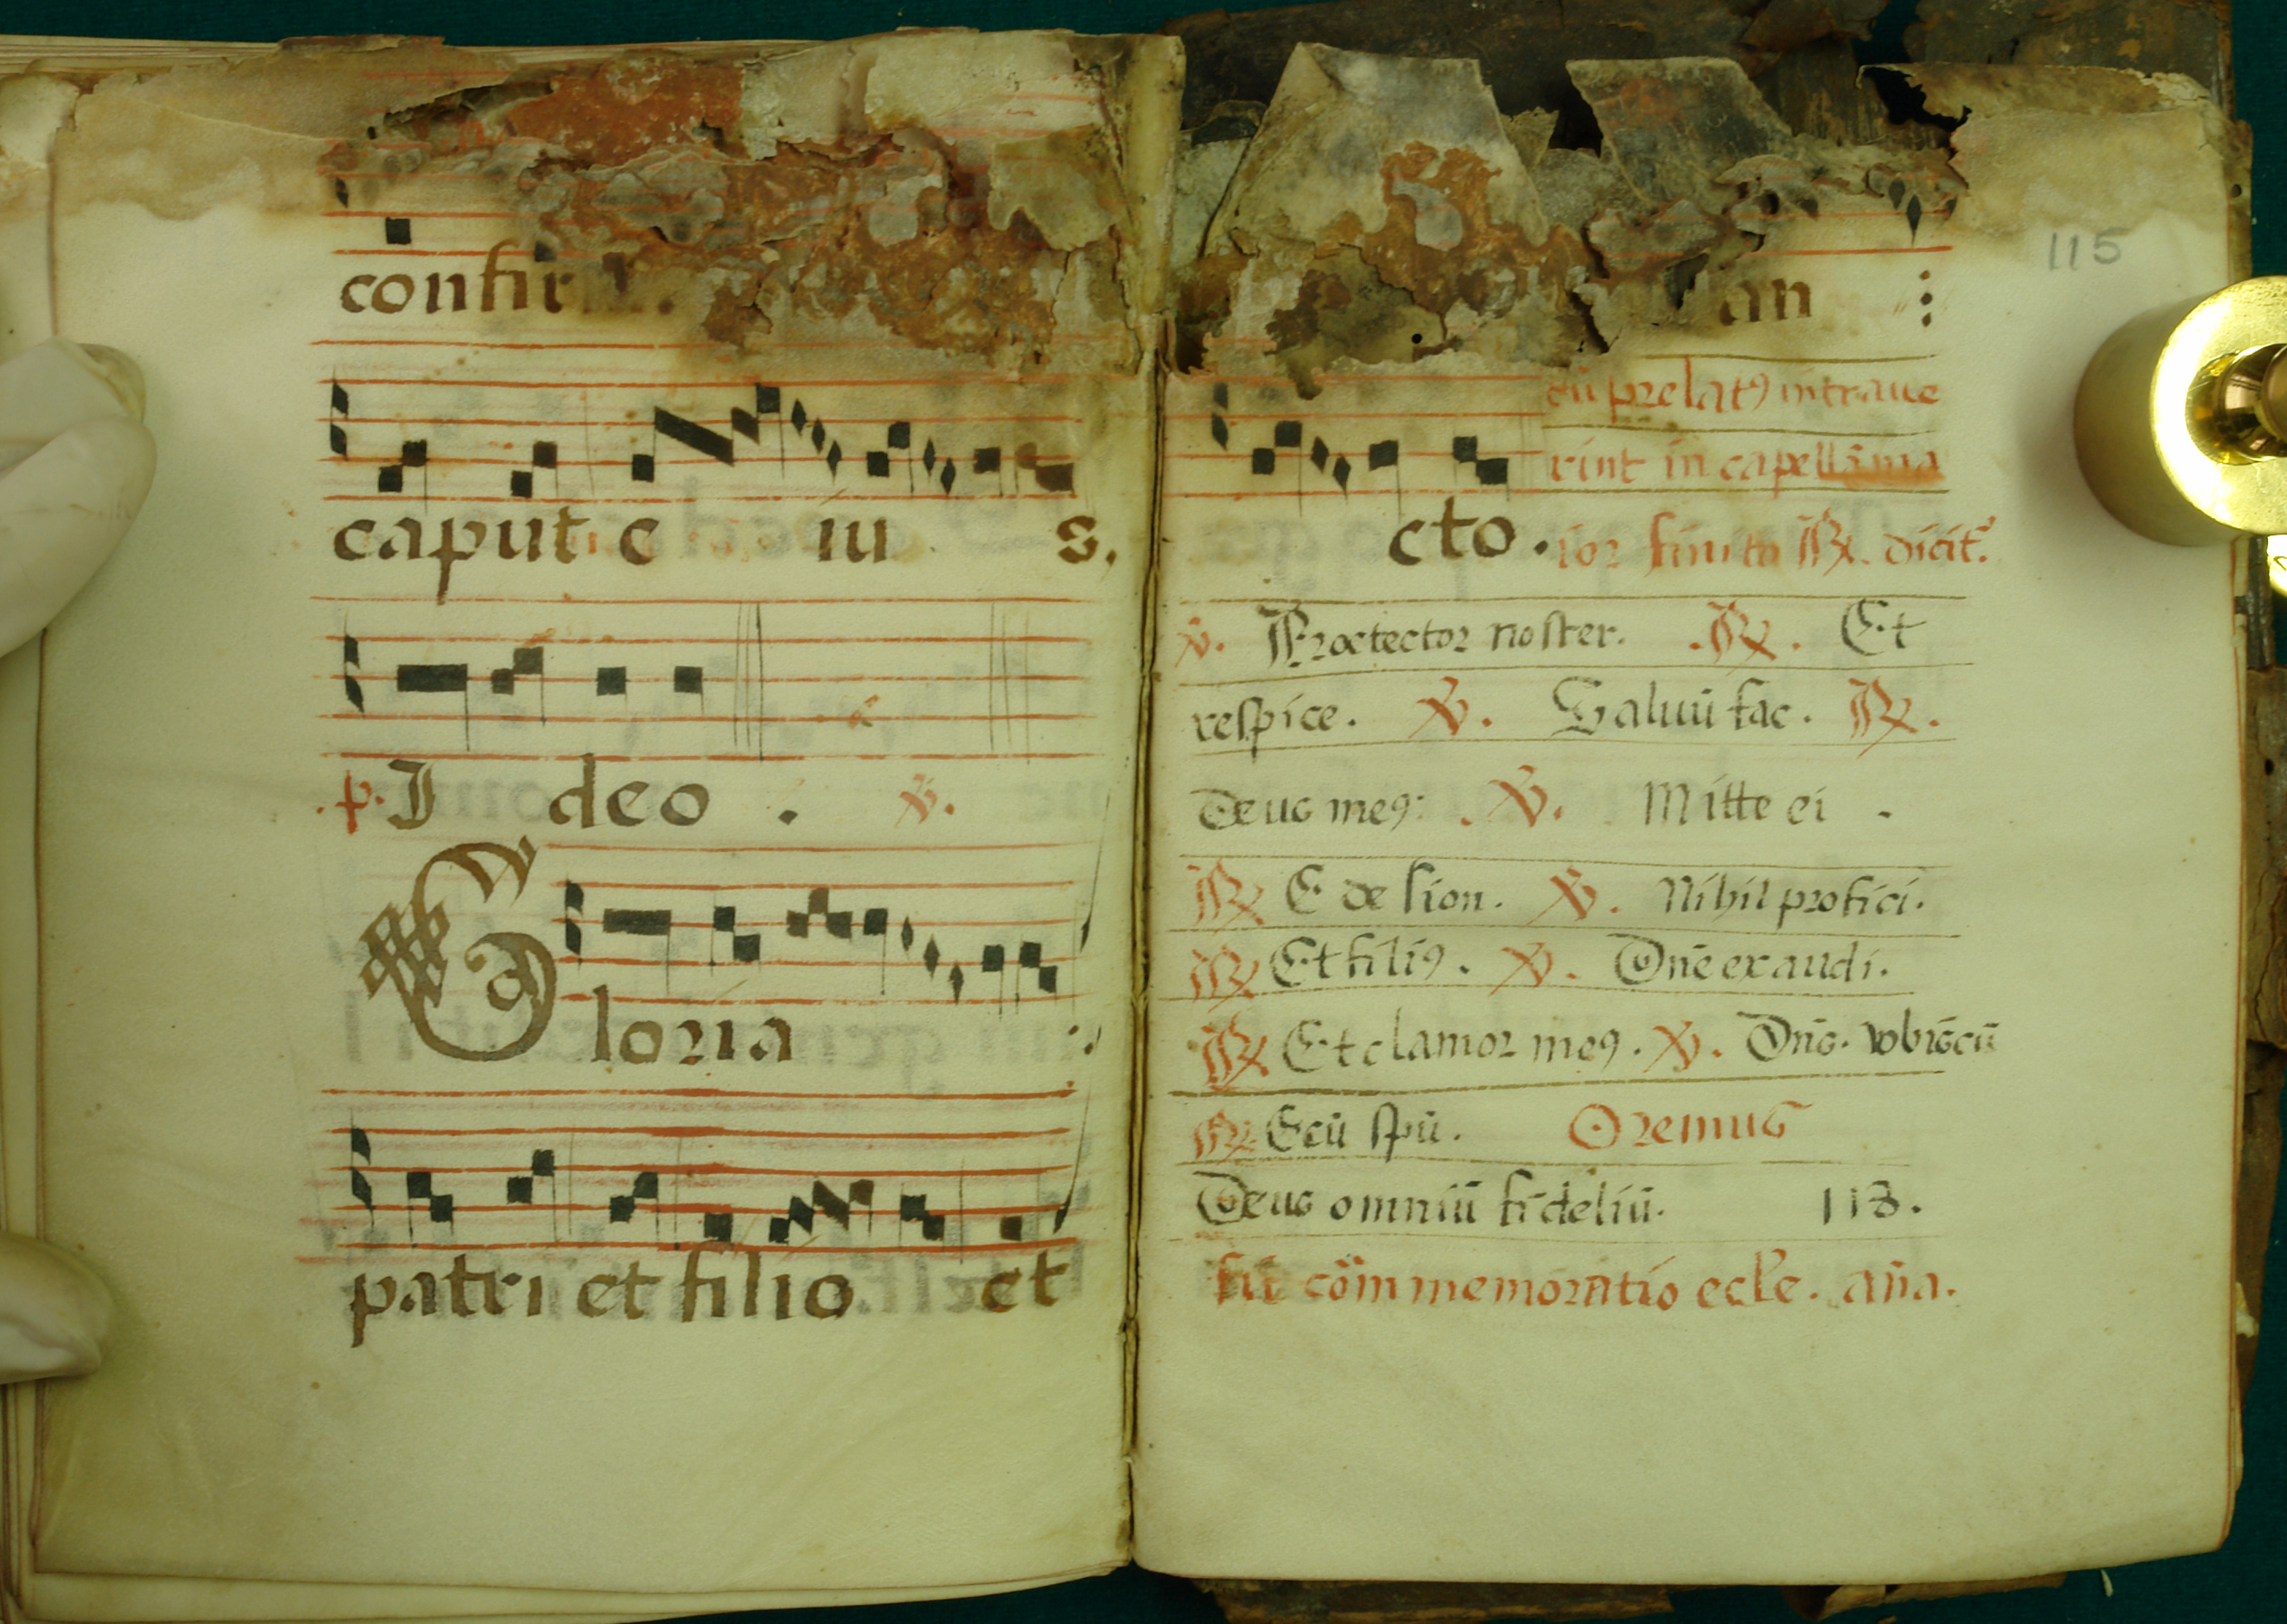 confir
caput e iu s.
.p. I deo . ℣.
Gloria :
patri et filio et
115
an :
cū prelatꝯ intraue
rint in capellā ma
cto . ior finito ℟. dicit᷑.
℣. Protector noster. .℟. Et
respice. ℣. Saluū fac. ℟.
Deus meꝯ: . ℣. Mitte ei .
℟ E de sion. ℣. Nihil profici.
℟ Et filiꝯ. ℣. Dn̄e exaudi.
℟ Et clamor meꝯ. ℣. Dn̄s. vobiscū
℟ Ecū spū. Oremus
Deus omniū fideliū. 118.
fit cōmmemoratio eccl'e. an̄a.